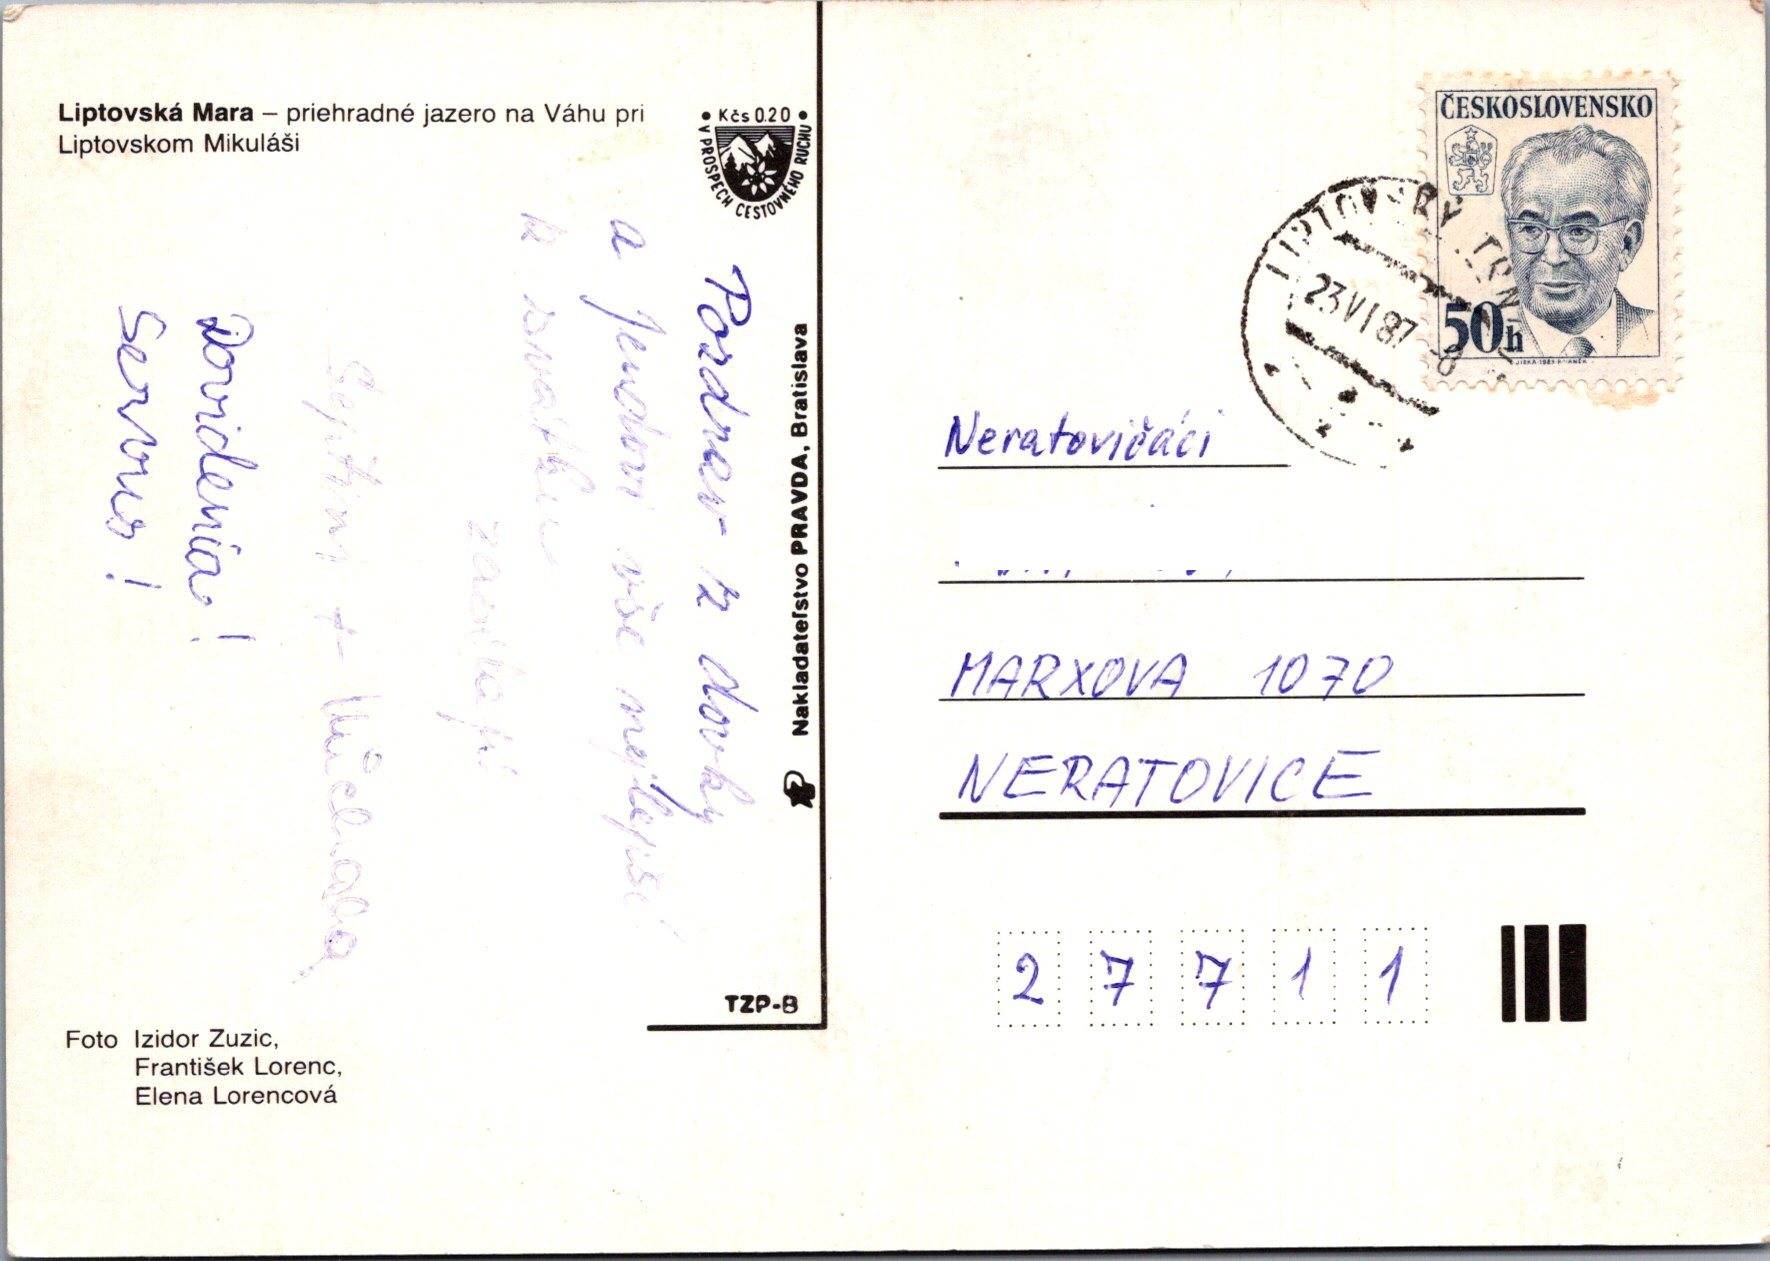 Liptovská Mara – priehradné jazero na Váhu pri
Liptovskom Mikuláši
• Kčs 0.20 •
V PROSPECH CESTOVNÉHO RUCHU
Pozdrav z dovky
a Jendovi vše nejlepší
k svátku
zasílají
Dovidenia!
Servus!
Nakladateľstvo PRAVDA, Bratislava
TZP-B
Foto Izidor Zuzic,
František Lorenc,
Elena Lorencová
ČESKOSLOVENSKO
50h
LIPTOVSKÝ
23 VI 87
Neratovičáci
MARXOVA 1070
NERATOVICE
2 7 7 1 1